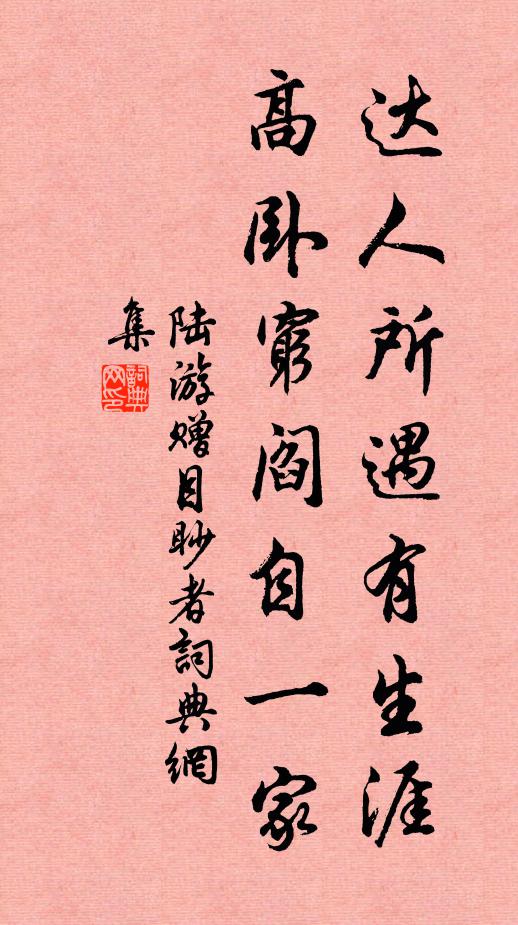 达人所遇有生涯
高卧穷阎自一家
陆游赠目眇者詞典網
集
詞典网印